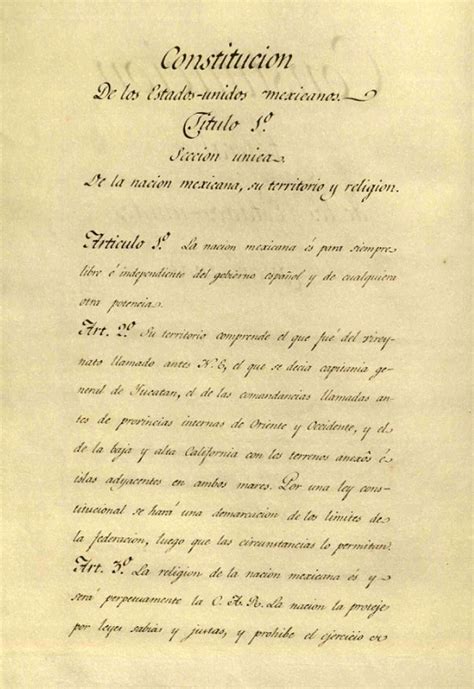 Constitucion
De los Estados-unidos mexicanos.
Titulo 1º
Seccion unica.
De la nacion mexicana, su territorio y religion.
Articulo 1º. La nacion mexicana és para siempre
libre é independiente del gobierno español y de cualquiera
otra potencia.
Art. 2º Su territorio comprende el que fué del virey-
nato llamado antes N.E, el que se decia capitania ge-
neral de Yucatan, el de las comandancias llamadas an-
tes de provincias internas de Oriente y Occidente, y el
de la baja y alta California con los terrenos anexôs é
islas adjacentes en ambos mares. Por una ley cons-
titucional se hará una demarcacion de los limites de
la federacion, luego que las circunstancias lo permitan.
Art. 3º La religion de la nacion mexicana és y
será perpetuamente la C. A. R. La nacion la proteje
por leyes sabias y justas, y prohibe el ejercicio de